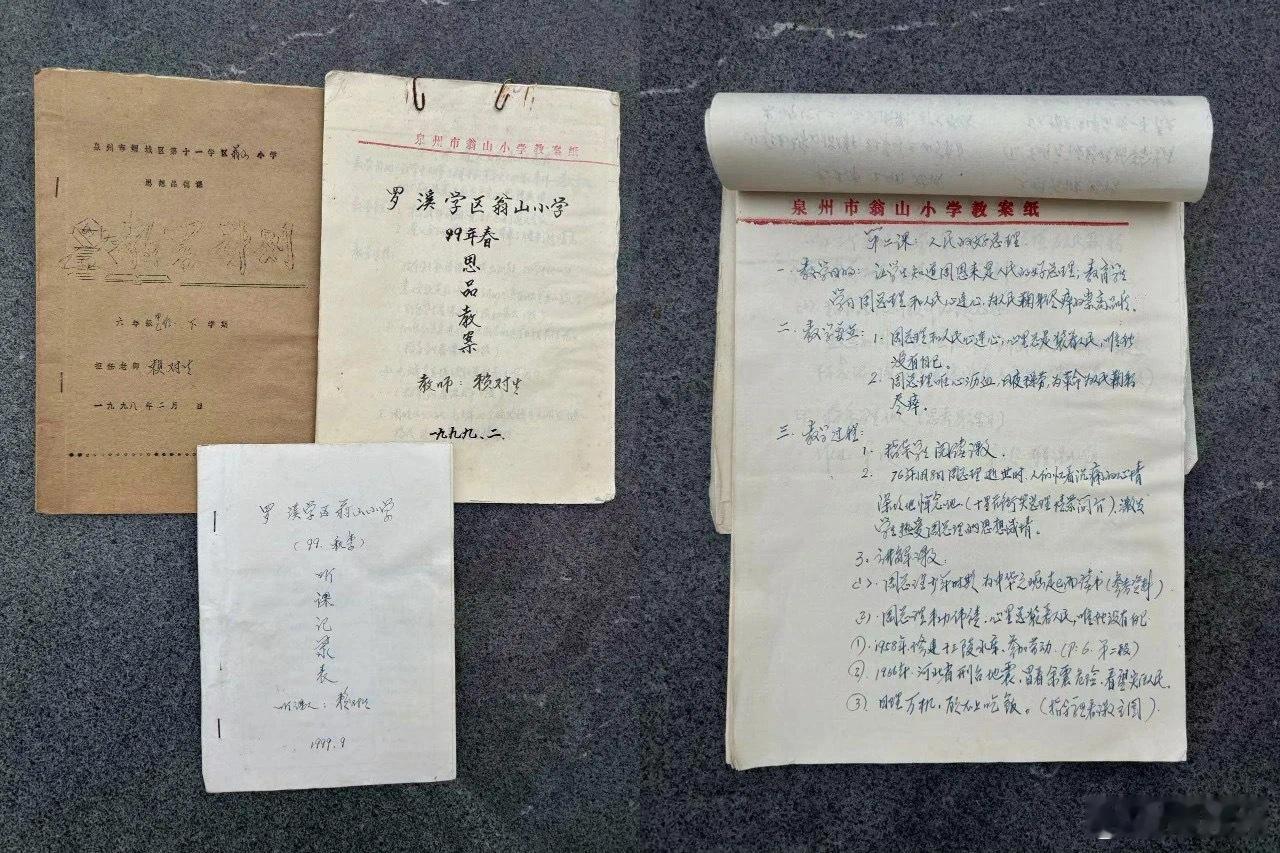 泉州市鲤城区第十一学区翁山小学
思想品德课
六年级 下学期
担任老师 赖对生
一九九八年二月 日
泉州市翁山小学教案纸
罗溪学区翁山小学
99年春
思品教案
教师：赖对生
一九九九、二.
罗溪学区翁山小学
（99.秋季）
听课记录表
听课人：赖对生
1999.9
泉州市翁山小学教案纸
第二课：人民的好总理
一、教学目的：让学生知道周恩来是人民的好总理，教育学生
学习周总理和人民心连心，为人民鞠躬尽瘁的崇高品质。
二、教学要点：1、周总理和人民心连心，心里总是装着人民，唯独
没有自己。
2、周总理呕心沥血，日夜操劳，为革命为人民鞠躬
尽瘁。
三、教学过程：
1、指导学生阅读课文。
2、76年1月8日周总理逝世时，人们怀着沉痛的心情
深切地悼念他。（十里长街哭总理情景简介），激发
学生热爱周总理的思想感情。
3、讲解课文：
周总理少年时期为中华之崛起而读书（参考资料）
周总理丰功伟绩，心里总装着人民，唯独没有自己
①、1958年修建十三陵水库，参加劳动.（P.6.第二段）
②、1966年，河北省邢台地震，冒着余震危险，看望灾区人民，
③、日理万机，顾不上吃饭。（指导看课文图）